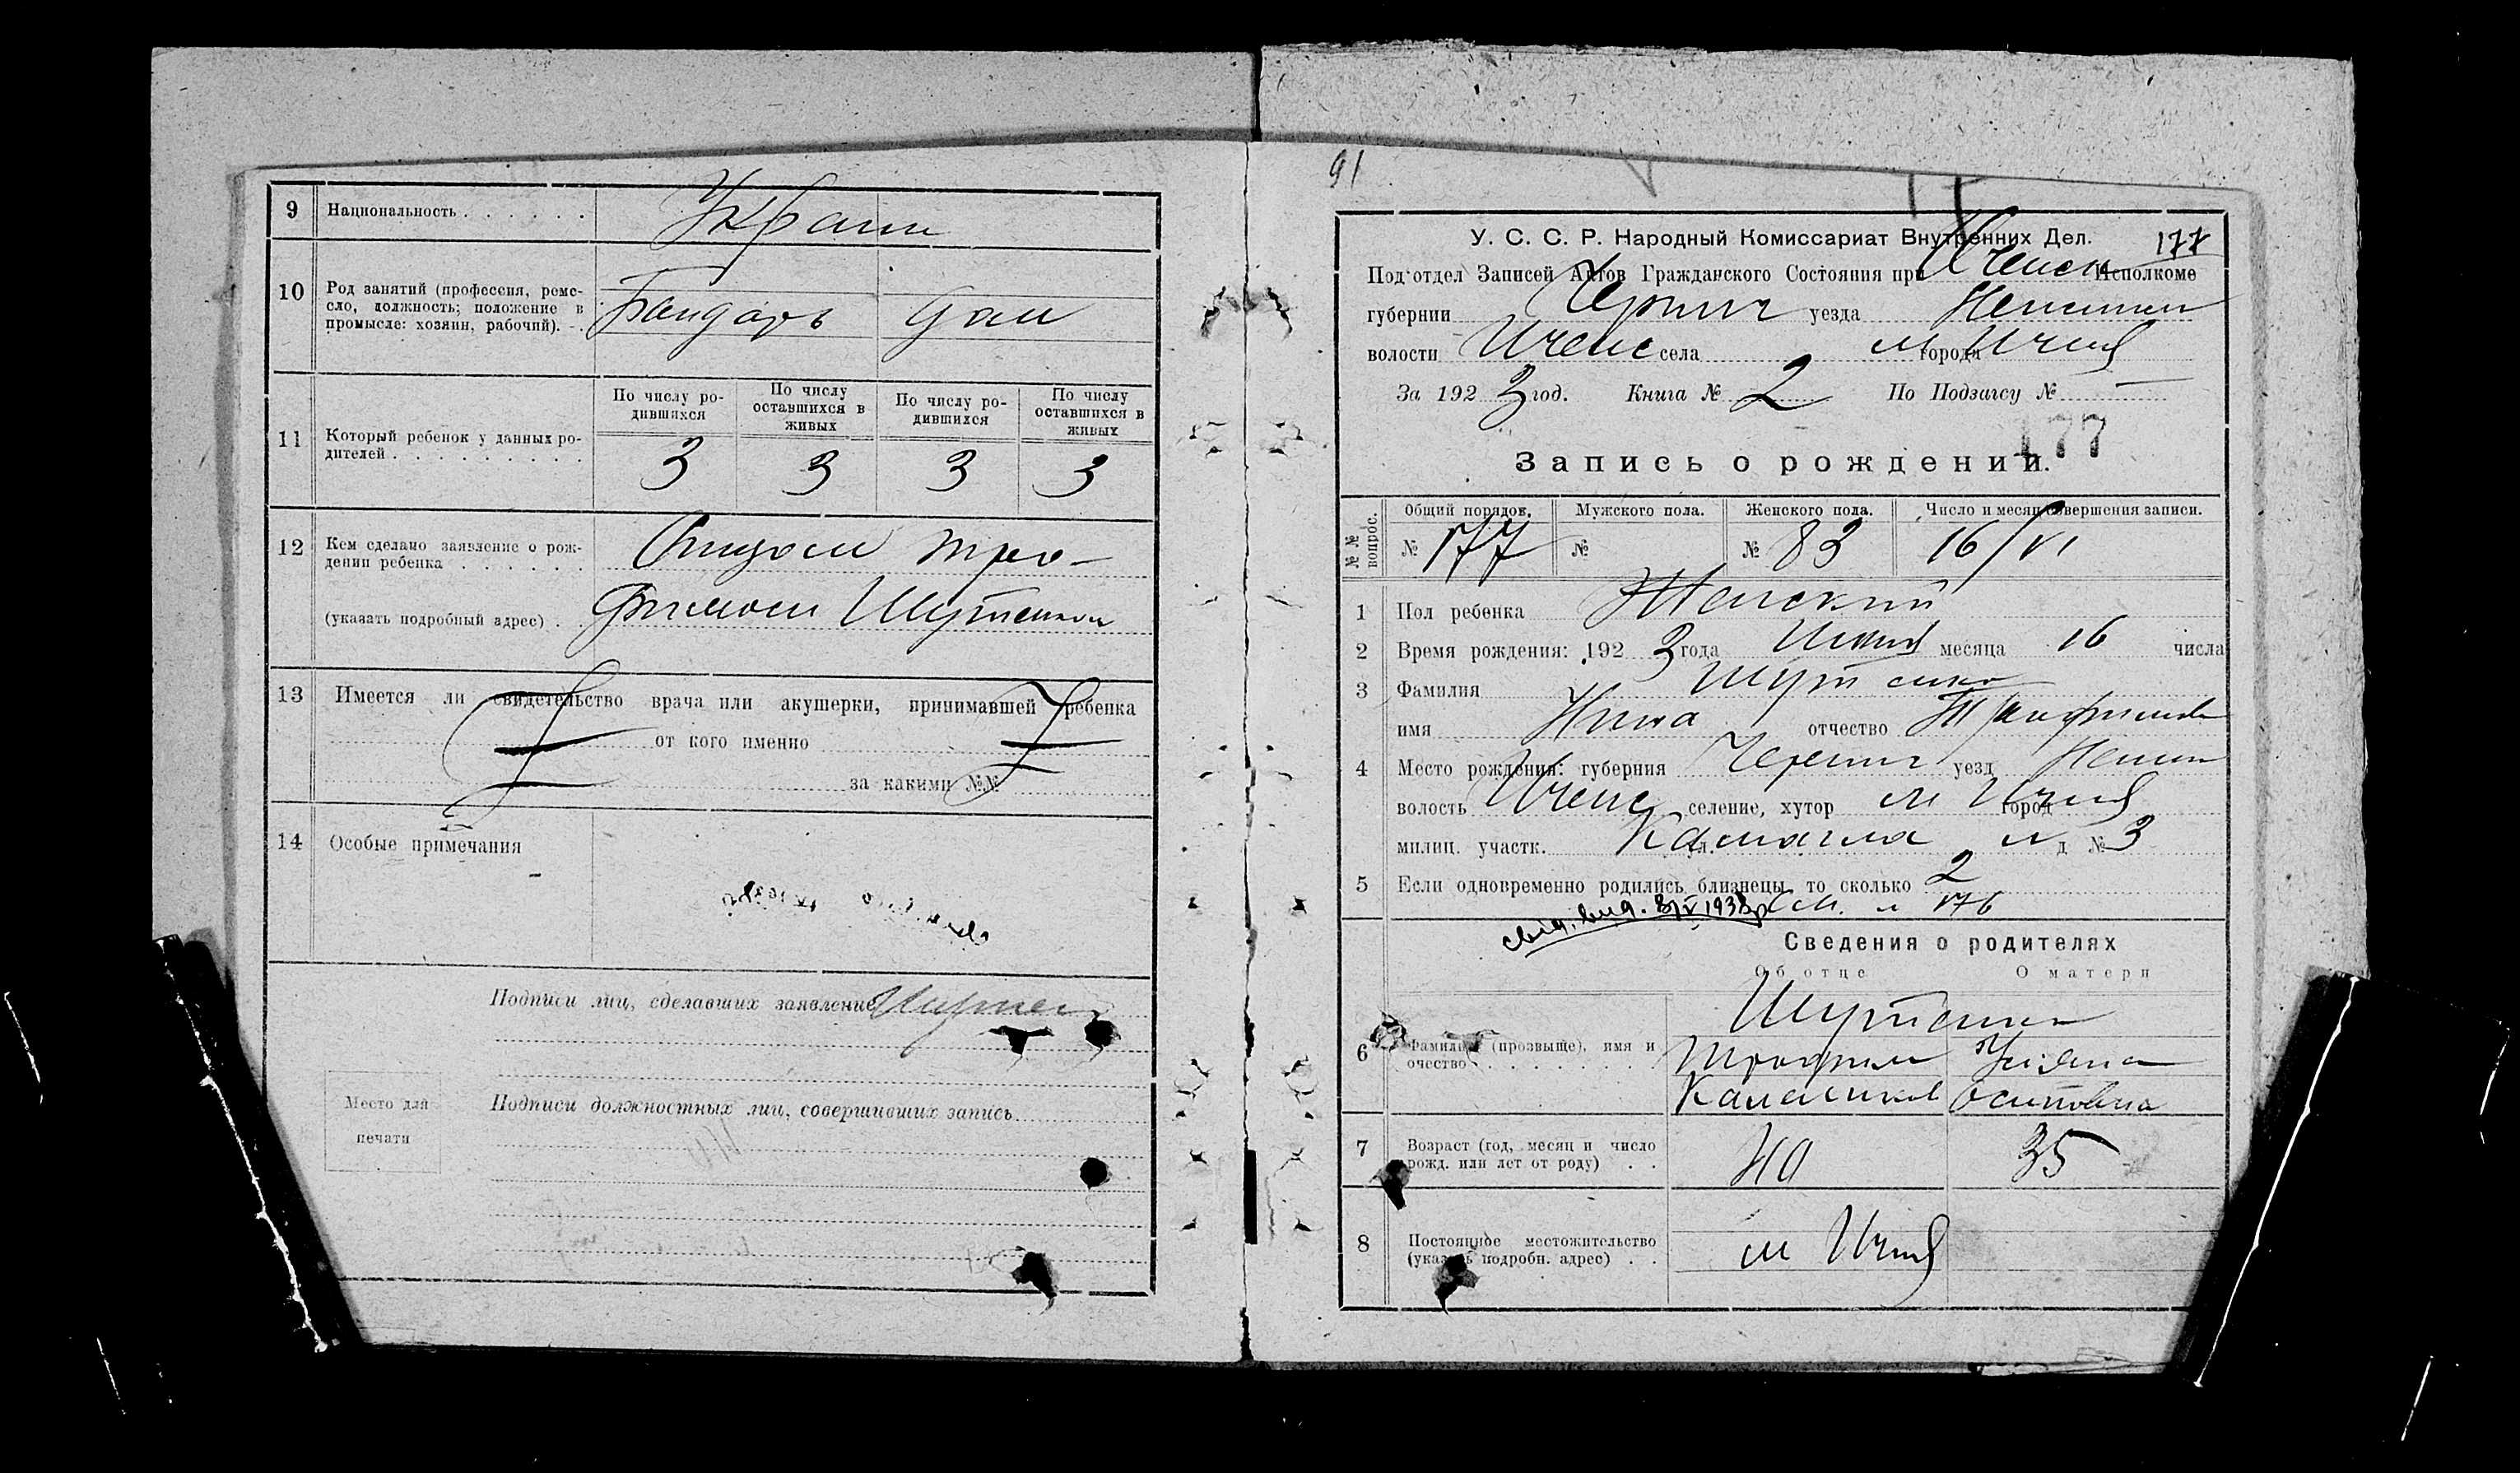 9 Национальность . . . . . . Украин
10 Род занятий (профессия, ремесло, должность; положение в промысле: хозяин, рабочий). Бондарь дом
По числу родившихся По числу оставшихся в живых По числу родившихся По числу оставшихся в живых
11 Который ребенок у данных родителей . . . . . . . . . 3 3 3 3
12 Кем сделано заявление о рождении ребенка . . . . . . Отцом Тро-
(указать подробный адрес) . . фимом Шутенком
13 Имеется ли свидетельство врача или акушерки, принимавшей ребенка
от кого именно
за какими №№
14 Особые примечания
Подписи лиц, сделавших заявление
Место для печати
Подписи должностных лиц, совершивших запись
91
У. С. С. Р. Народный Комиссариат Внутренних Дел. 177
Под'отдел Записей Актов Гражданского Состояния при Иченск Исполкоме
губернии Черниг уезда Нежинск
волости Иченс села м города Ичня
За 1923 год. Книга № 2 По Подзагсу № —
177
Запись о рождении.
№№ вопрос. Общий порядов. Мужского пола. Женского пола. Число и месяц совершения записи.
№ 177 № № 83 16/VI
1 Пол ребенка Женский
2 Время рождения: 1923 года Июня месяца 16 числа
3 Фамилия Шутенко
имя Нина отчество Трофимов
4 Место рождения: губерния Черниг уезд Нежин
волость Иченс селение, хутор м Ичня город
милиц. участк. ул. д № 3
5 Если одновременно родились близнецы, то сколько 2
свид. выд. 3/V 1938р См. № 176
Сведения о родителях
Об отце О матери
Шутенко
6 Фамилия (прозвыще), имя и очество . . . . . . . Трофим Ульяна
Осиповна
7 Возраст (год, месяц и число рожд. или лет от роду) . . 40 35
8 Постоянное местожительство (указать подробн. адрес) . . м Ичня